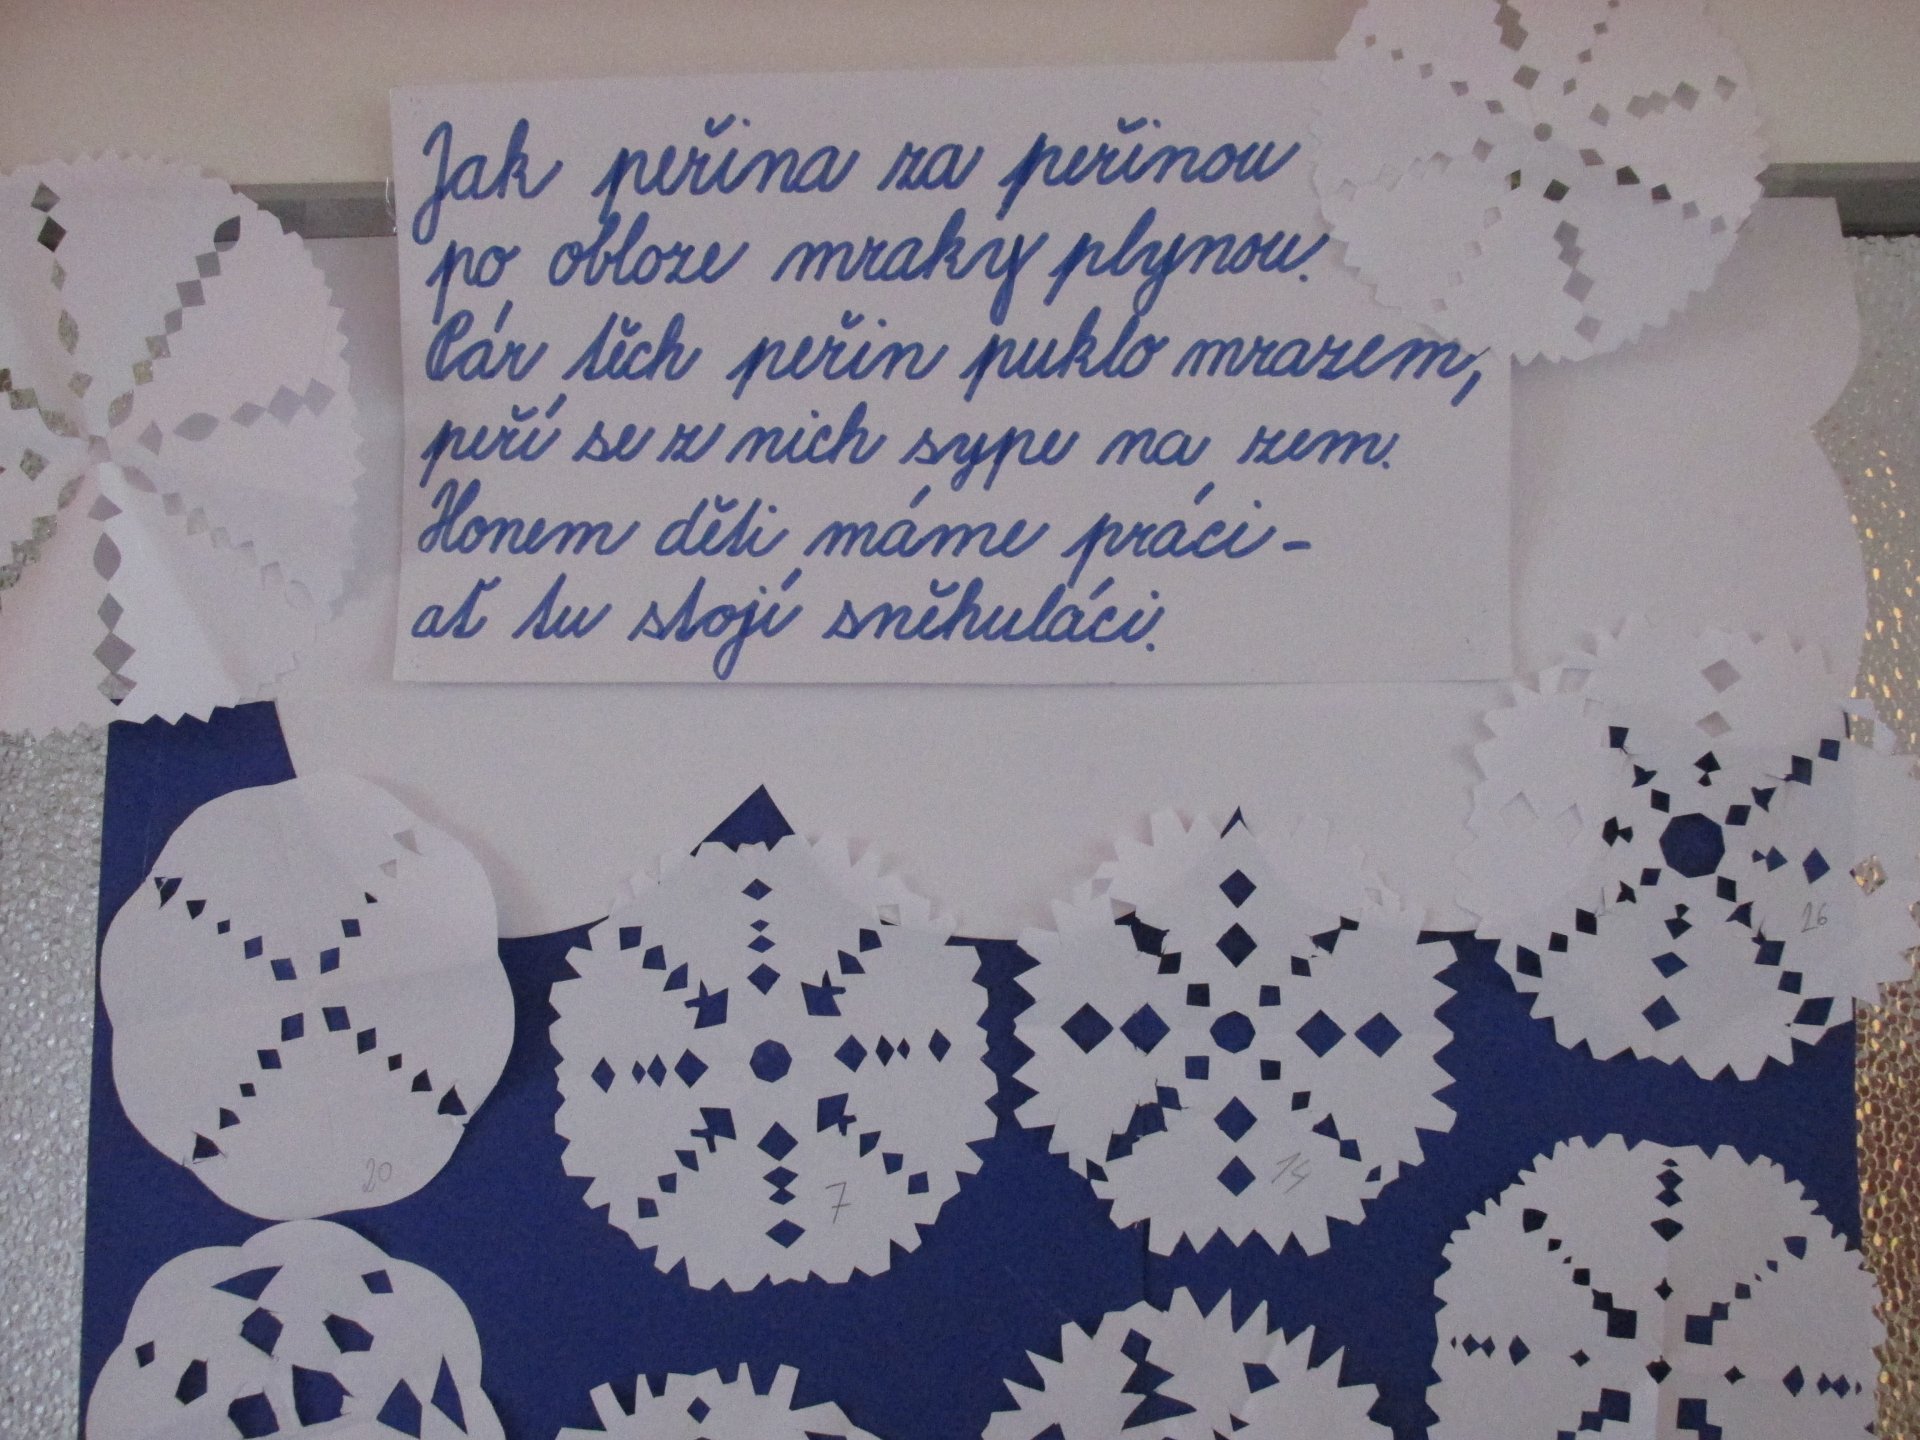 Jak peřina za peřinou
po obloze mraky plynou.
Pár těch peřin puklo mrazem,
peří se z nich sype na zem.
Honem děti máme práci -
ať tu stojí sněhuláci.
26
20
7
14